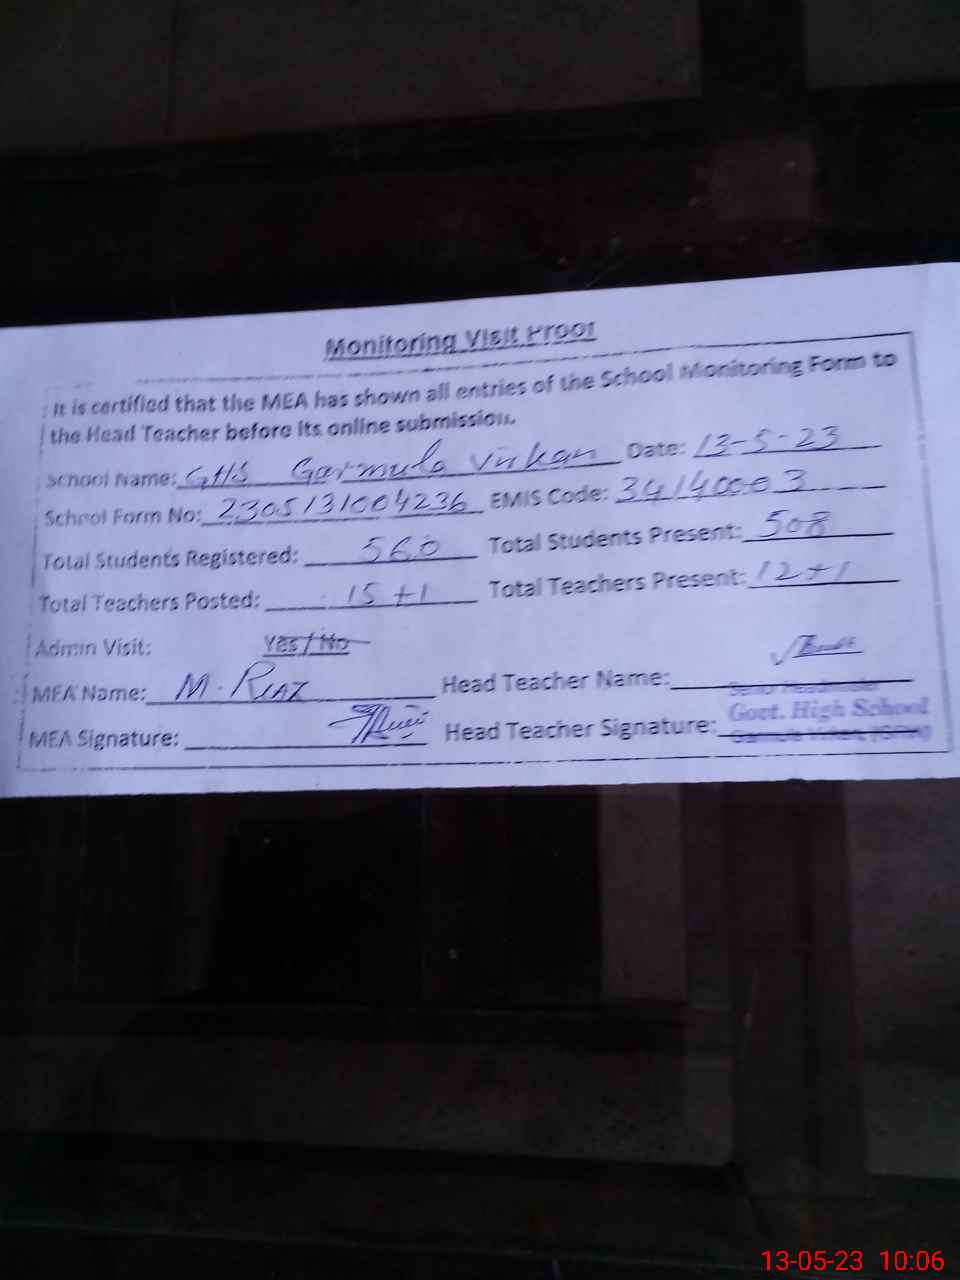 Monitoring Visit Proof
It is certified that the MEA has shown all entries of the School Monitoring Form to
the Head Teacher before its online submission.
School Name: GHS Garmula Virkan Date: 13-5-23
School Form No: 2305131004236 EMIS Code: 34140003
Total Students Registered: 560 Total Students Present: 508
Total Teachers Posted: 15+1 Total Teachers Present: 12+1
Admin Visit: Yes / No
MEA Name: M. RIAZ Head Teacher Name:
MEA Signature: Head Teacher Signature:
Senior Headmaster
Govt. High School
Garmula Virkan, (GRW)
13-05-23 10:06